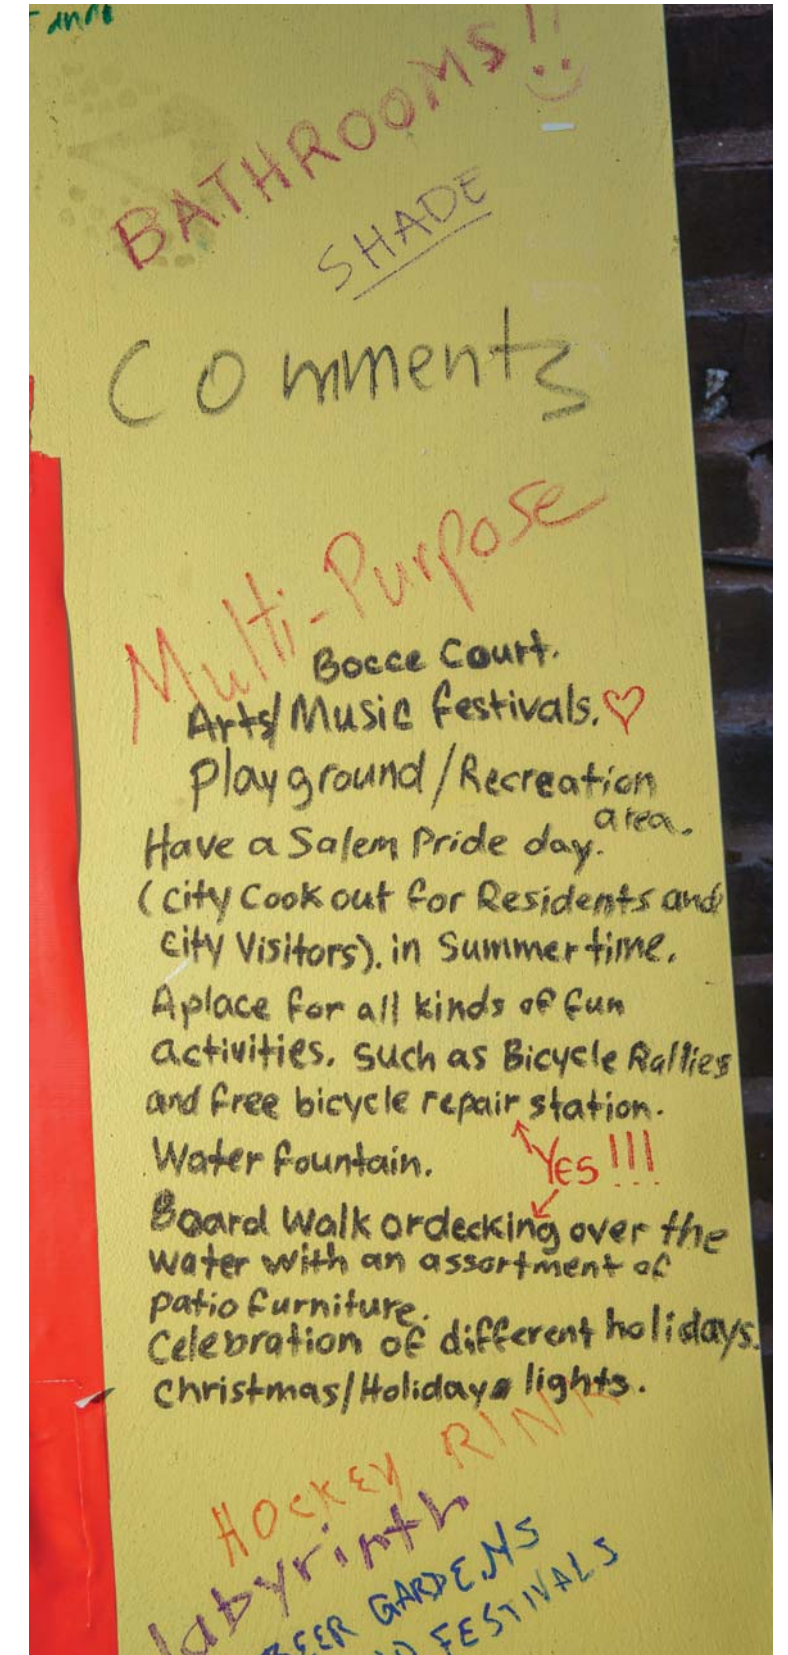 BATHROOMS!!
SHADE
Comments
Multi-Purpose
Bocce Court.
Arts/Music festivals.
Playground/Recreation
area.
Have a Salem Pride day.
(city Cook out for Residents and
city Visitors). in Summertime.
A place for all kinds of fun
activities. Such as Bicycle Rallies
and free bicycle repair station.
Water fountain.
YES!!!
Board Walk or decking over the
water with an assortment of
patio furniture.
Celebration of different holidays.
Christmas/Holidays lights.
HOCKEY RINK
labyrinth
BEER GARDENS
FESTIVALS